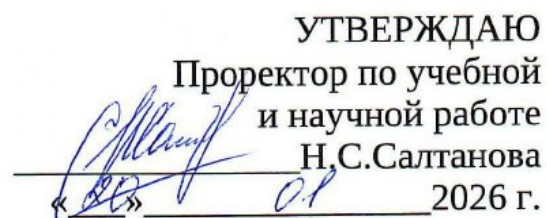 УТВЕРЖДАЮ
Проректор по учебной
и научной работе
Н.С.Салтанова
«20» 01 2026 г.